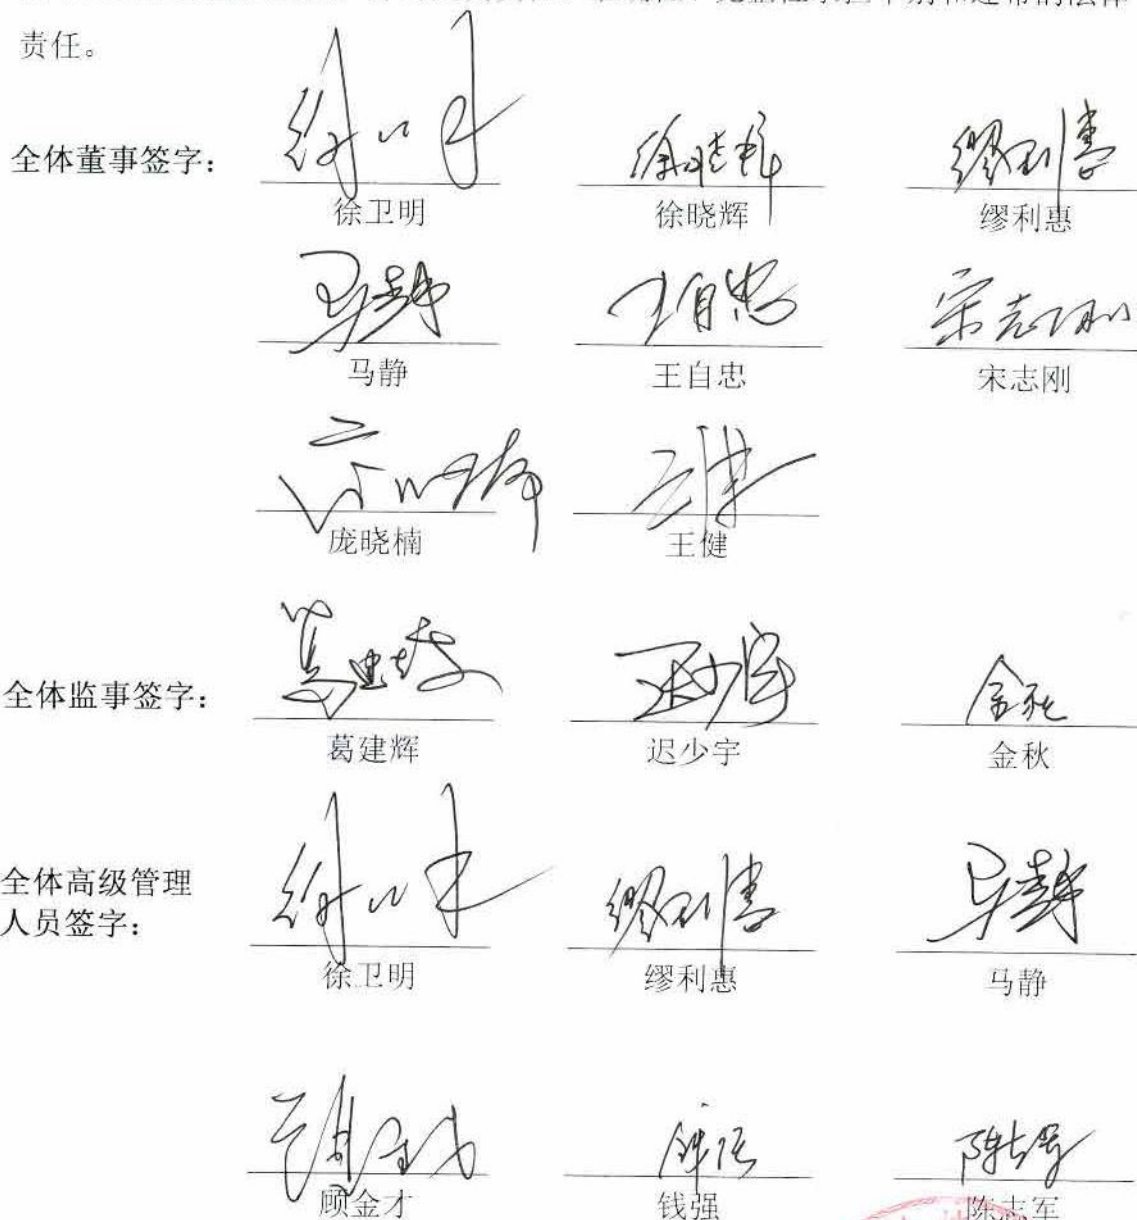 责任。
全体董事签字：
徐卫明 徐晓辉 缪利惠
马静 王自忠 宋志刚
庞晓楠 王健
全体监事签字：
葛建辉 迟少宇 金秋
全体高级管理
人员签字：
徐卫明 缪利惠 马静
顾金才 钱强 陈志军